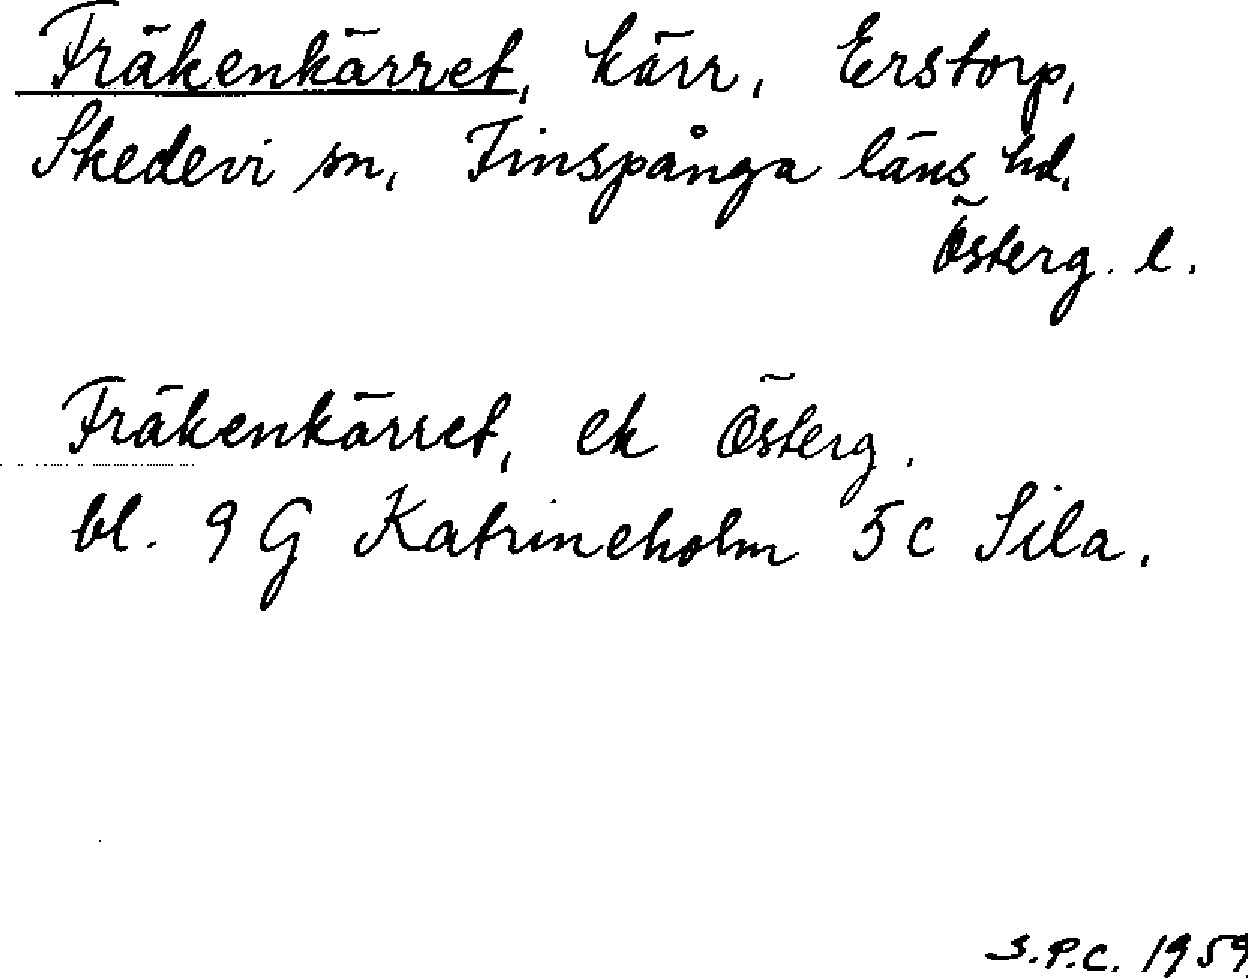 Fräkenkärret, kärr, Erstorp,
Skedevi sn, Finspånga läns hd.
Österg. l.
Fräkenkärret, ek Österg.
bl. 9 G Katrineholm 5c Sila.
S.P.C. 1959